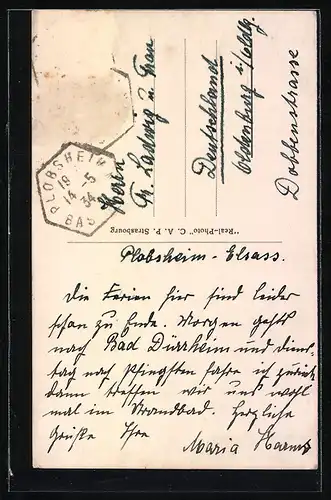 PLOBSHEIM
19
14 -5
34
BAS
Herrn
Fr. Ladwig u. Frau
Deutschland
Oldenburg i/Oldg.
Dobbenstrasse
"Real-Photo" C. A. P. Strasbourg
Plobsheim - Elsass.
Die Ferien hier sind leider
schon zu Ende. Morgen gehts
nach Bad Dürrheim und diens-
tag nach Pfingsten fahre ich zurück
dann treffen wir uns wohl
mal im Strandbad. Herzliche
Grüße Ihre
Maria Harms